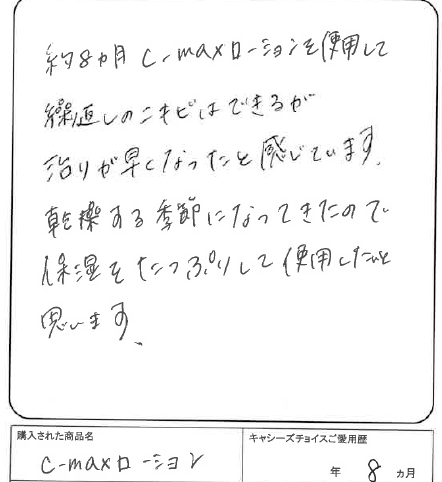 約8ヵ月 C-maxローションを使用して
繰返しのニキビはできるが
治りが早くなったと感じています。
乾燥する季節になってきたので
保湿をたっぷりして使用したいと
思います。
購入された商品名
キャシーズチョイスご愛用歴
C-maxローション
年 8 ヵ月